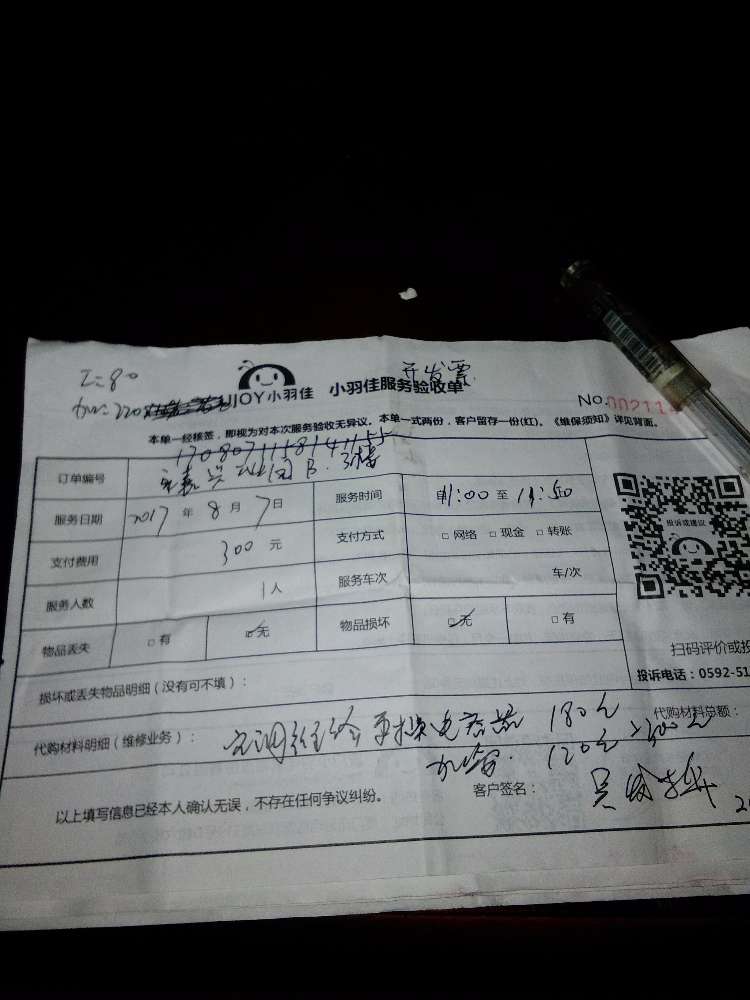 工=80
开发票
加=220
UJOY小羽佳 小羽佳服务验收单
No.002114
本单一经核签，即视为对本次服务验收无异议。本单一式两份，客户留存一份(红)。《维保须知》详见背面。
订单编号 1708071158141155
B. 3楼
服务日期 2017 年 8 月 7 日 服务时间 11:00 至 11:50
支付费用 300 元 支付方式 □ 网络 □ 现金 □ 转账
服务人数 1 人 服务车次 车/次
物品丢失 □ 有 ☑ 无 物品损坏 ☑ 无 □ 有
投诉或建议
扫码评价或投
投诉电话：0592-51
损坏或丢失物品明细（没有可不填）：
代购材料明细（维修业务）： 空调 更换电容器 180元 代购材料总额：
120元 300元
以上填写信息已经本人确认无误，不存在任何争议纠纷。 客户签名：